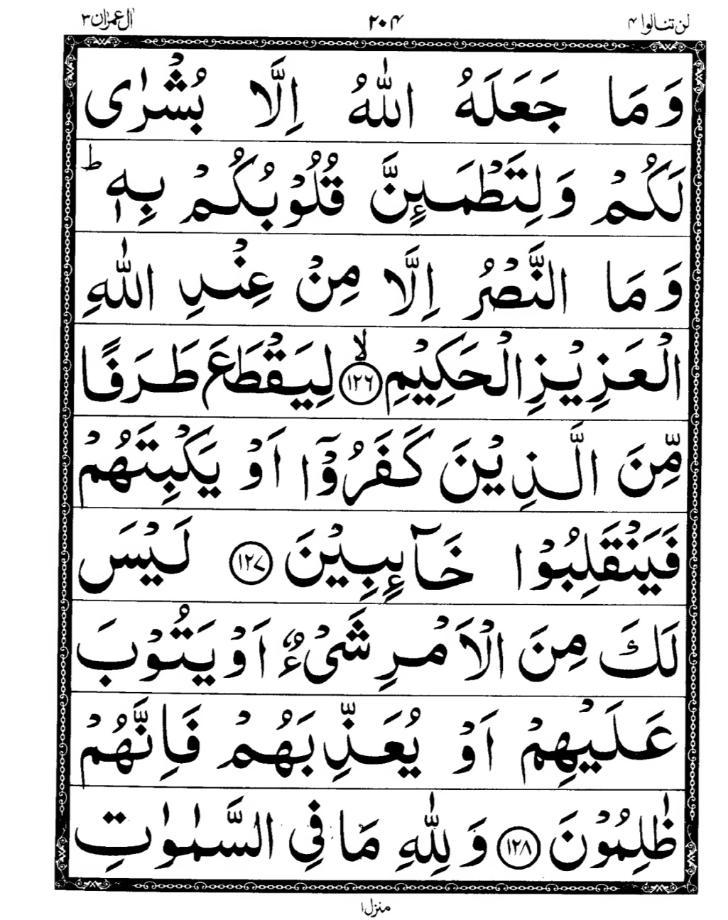 لن تنالوا ۴ ۲۰۴ اٰل عمرٰن ۳
وَمَا جَعَلَهُ اللّٰهُ اِلَّا بُشْرٰى
لَكُمْ وَلِتَطْمَىِٕنَّ قُلُوْبُكُمْ بِهٖ ؕ
وَمَا النَّصْرُ اِلَّا مِنْ عِنْدِ اللّٰهِ
الْعَزِيْزِ الْحَكِيْمِ ۙ﴿۱۲۶﴾ لِيَقْطَعَ طَرَفًا
مِّنَ الَّذِيْنَ كَفَرُوْۤا اَوْ يَكْبِتَهُمْ
فَيَنْقَلِبُوْا خَآىِٕبِيْنَ ﴿۱۲۷﴾ لَيْسَ
لَكَ مِنَ الْاَمْرِ شَىْءٌ اَوْ يَتُوْبَ
عَلَيْهِمْ اَوْ يُعَذِّبَهُمْ فَاِنَّهُمْ
ظٰلِمُوْنَ ﴿۱۲۸﴾ وَلِلّٰهِ مَا فِى السَّمٰوٰتِ
منزل ۱